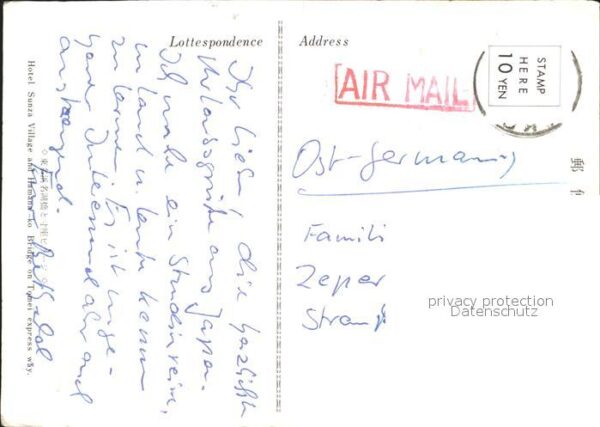 Lottespondence
Address
AIR MAIL
STAMP
HERE
10 YEN
郵
Ost-Germany
Famili
Zeper
Ihr Lieben, die herzlichsten
Urlaubsgrüße aus Japan.
Ich mache eine Studienreise,
um Land u. Leute kennen
zu lernen. Es ist unge-
heuer interessant aber auch
anstrengend.
Hotel Sunza Village and Hamana-ko Bridge on Tomei express way.
privacy protection
Datenschutz